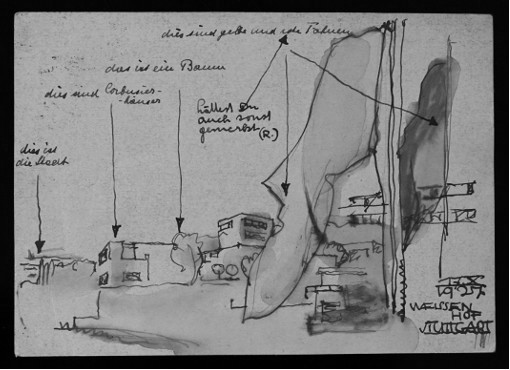 dies sind gelbe und rote Fahnen
das ist ein Baum
dies sind Corbusier-
-häuser
hättest Du
auch sonst
gemerkt
(R.)
dies ist
die Stadt
1927
WEISSEN
HOF
STUTTGART